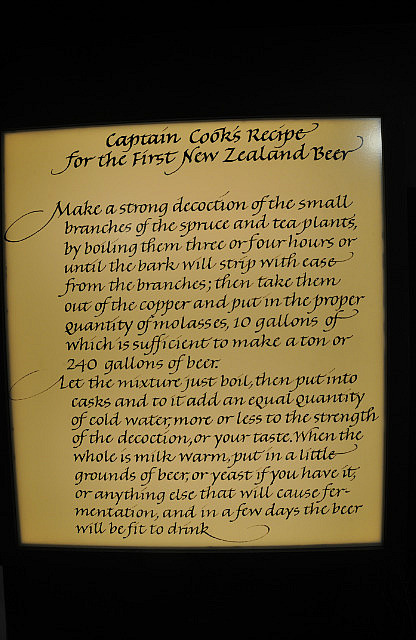 Captain Cook's Recipe
for the First New Zealand Beer
Make a strong decoction of the small
branches of the spruce and tea plants,
by boiling them three or four hours or
until the bark will strip with ease
from the branches; then take them
out of the copper and put in the proper
quantity of molasses, 10 gallons of
which is sufficient to make a ton or
240 gallons of beer.
Let the mixture just boil, then put into
casks and to it add an equal quantity
of cold water, more or less to the strength
of the decoction, or your taste. When the
whole is milk warm, put in a little
grounds of beer, or yeast if you have it,
or anything else that will cause fer-
mentation, and in a few days the beer
will be fit to drink